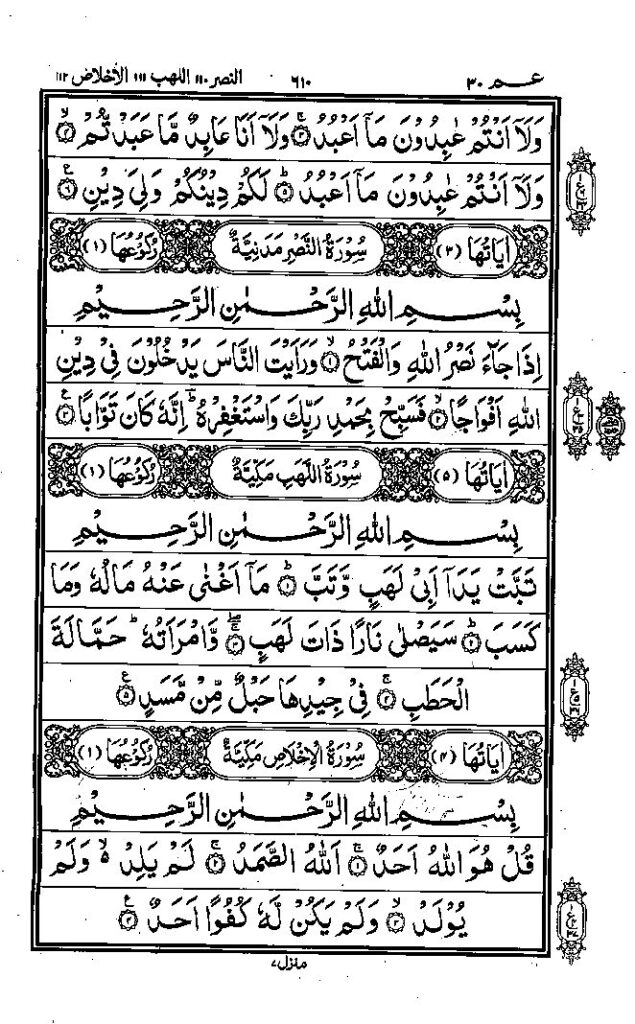 عـم ٣٠ ٦١٠ النصر ١١٠ اللهب ١١١ الأخلاص ١١٢
وَلَآ اَنْتُمْ عٰبِدُوْنَ مَآ اَعْبُدُ ۚ﴿٣﴾ وَلَآ اَنَا عَابِدٌ مَّا عَبَدْتُّمْ ۙ﴿٤﴾
وَلَآ اَنْتُمْ عٰبِدُوْنَ مَآ اَعْبُدُ ؕ﴿٥﴾ لَكُمْ دِيْنُكُمْ وَلِيَ دِيْنِ ﴿٦﴾ ع
اٰيَاتُهَا (٣) سُوْرَةُ النَّصْرِ مَدَنِيَّةٌ رُكُوْعُهَا (١)
بِسْمِ اللهِ الرَّحْمٰنِ الرَّحِيْمِ
اِذَا جَآءَ نَصْرُ اللهِ وَالْفَتْحُ ۙ﴿١﴾ وَرَاَيْتَ النَّاسَ يَدْخُلُوْنَ فِيْ دِيْنِ
اللهِ اَفْوَاجًا ۙ﴿٢﴾ فَسَبِّحْ بِحَمْدِ رَبِّكَ وَاسْتَغْفِرْهُ ؕ اِنَّهٗ كَانَ تَوَّابًا ﴿٣﴾ ع
اٰيَاتُهَا (٥) سُوْرَةُ اللَّهَبِ مَكِّيَّةٌ رُكُوْعُهَا (١)
بِسْمِ اللهِ الرَّحْمٰنِ الرَّحِيْمِ
تَبَّتْ يَدَآ اَبِيْ لَهَبٍ وَّتَبَّ ؕ﴿١﴾ مَآ اَغْنٰى عَنْهُ مَالُهٗ وَمَا
كَسَبَ ؕ﴿٢﴾ سَيَصْلٰى نَارًا ذَاتَ لَهَبٍ ۚۖ﴿٣﴾ وَّامْرَاَتُهٗ ؕ حَمَّالَةَ
الْحَطَبِ ۚ﴿٤﴾ فِيْ جِيْدِهَا حَبْلٌ مِّنْ مَّسَدٍ ﴿٥﴾ ع
اٰيَاتُهَا (٤) سُوْرَةُ الْاِخْلَاصِ مَكِّيَّةٌ رُكُوْعُهَا (١)
بِسْمِ اللهِ الرَّحْمٰنِ الرَّحِيْمِ
قُلْ هُوَ اللهُ اَحَدٌ ۚ﴿١﴾ اَللهُ الصَّمَدُ ۚ﴿٢﴾ لَمْ يَلِدْ ۙ۬ وَلَمْ
يُوْلَدْ ۙ﴿٣﴾ وَلَمْ يَكُنْ لَّهٗ كُفُوًا اَحَدٌ ﴿٤﴾ ع
منزل ٧